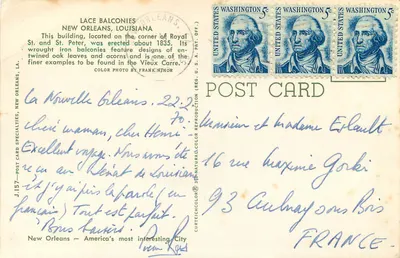 LACE BALCONIES
NEW ORLEANS, LOUISIANA
This building, located on the corner of Royal
St. and St. Peter, was erected about 1835. Its
wrought iron balconies feature designs of en-
twined oak leaves and acorns and is one of the
finer examples to be found in the Vieux Carre.
COLOR PHOTO BY FRANK
WASHINGTON 5c
WASHINGTON 5c
WASHINGTON 5c
POST CARD
J.157—POST CARD SPECIALTIES, NEW ORLEANS, LA.
La Nouvelle Orléans. 22-2-
70
chère maman, cher Henri
Excellent voyage. Nous avons été
reçus au Sénat de Louisiane
et j'y ai pris la parole (en
français) Tout est parfait.
Bons baisers.
Monsieur et madame
16 rue Maxime Gorki
93 Aulnay sous Bois
FRANCE.
New Orleans — America's most interesting City